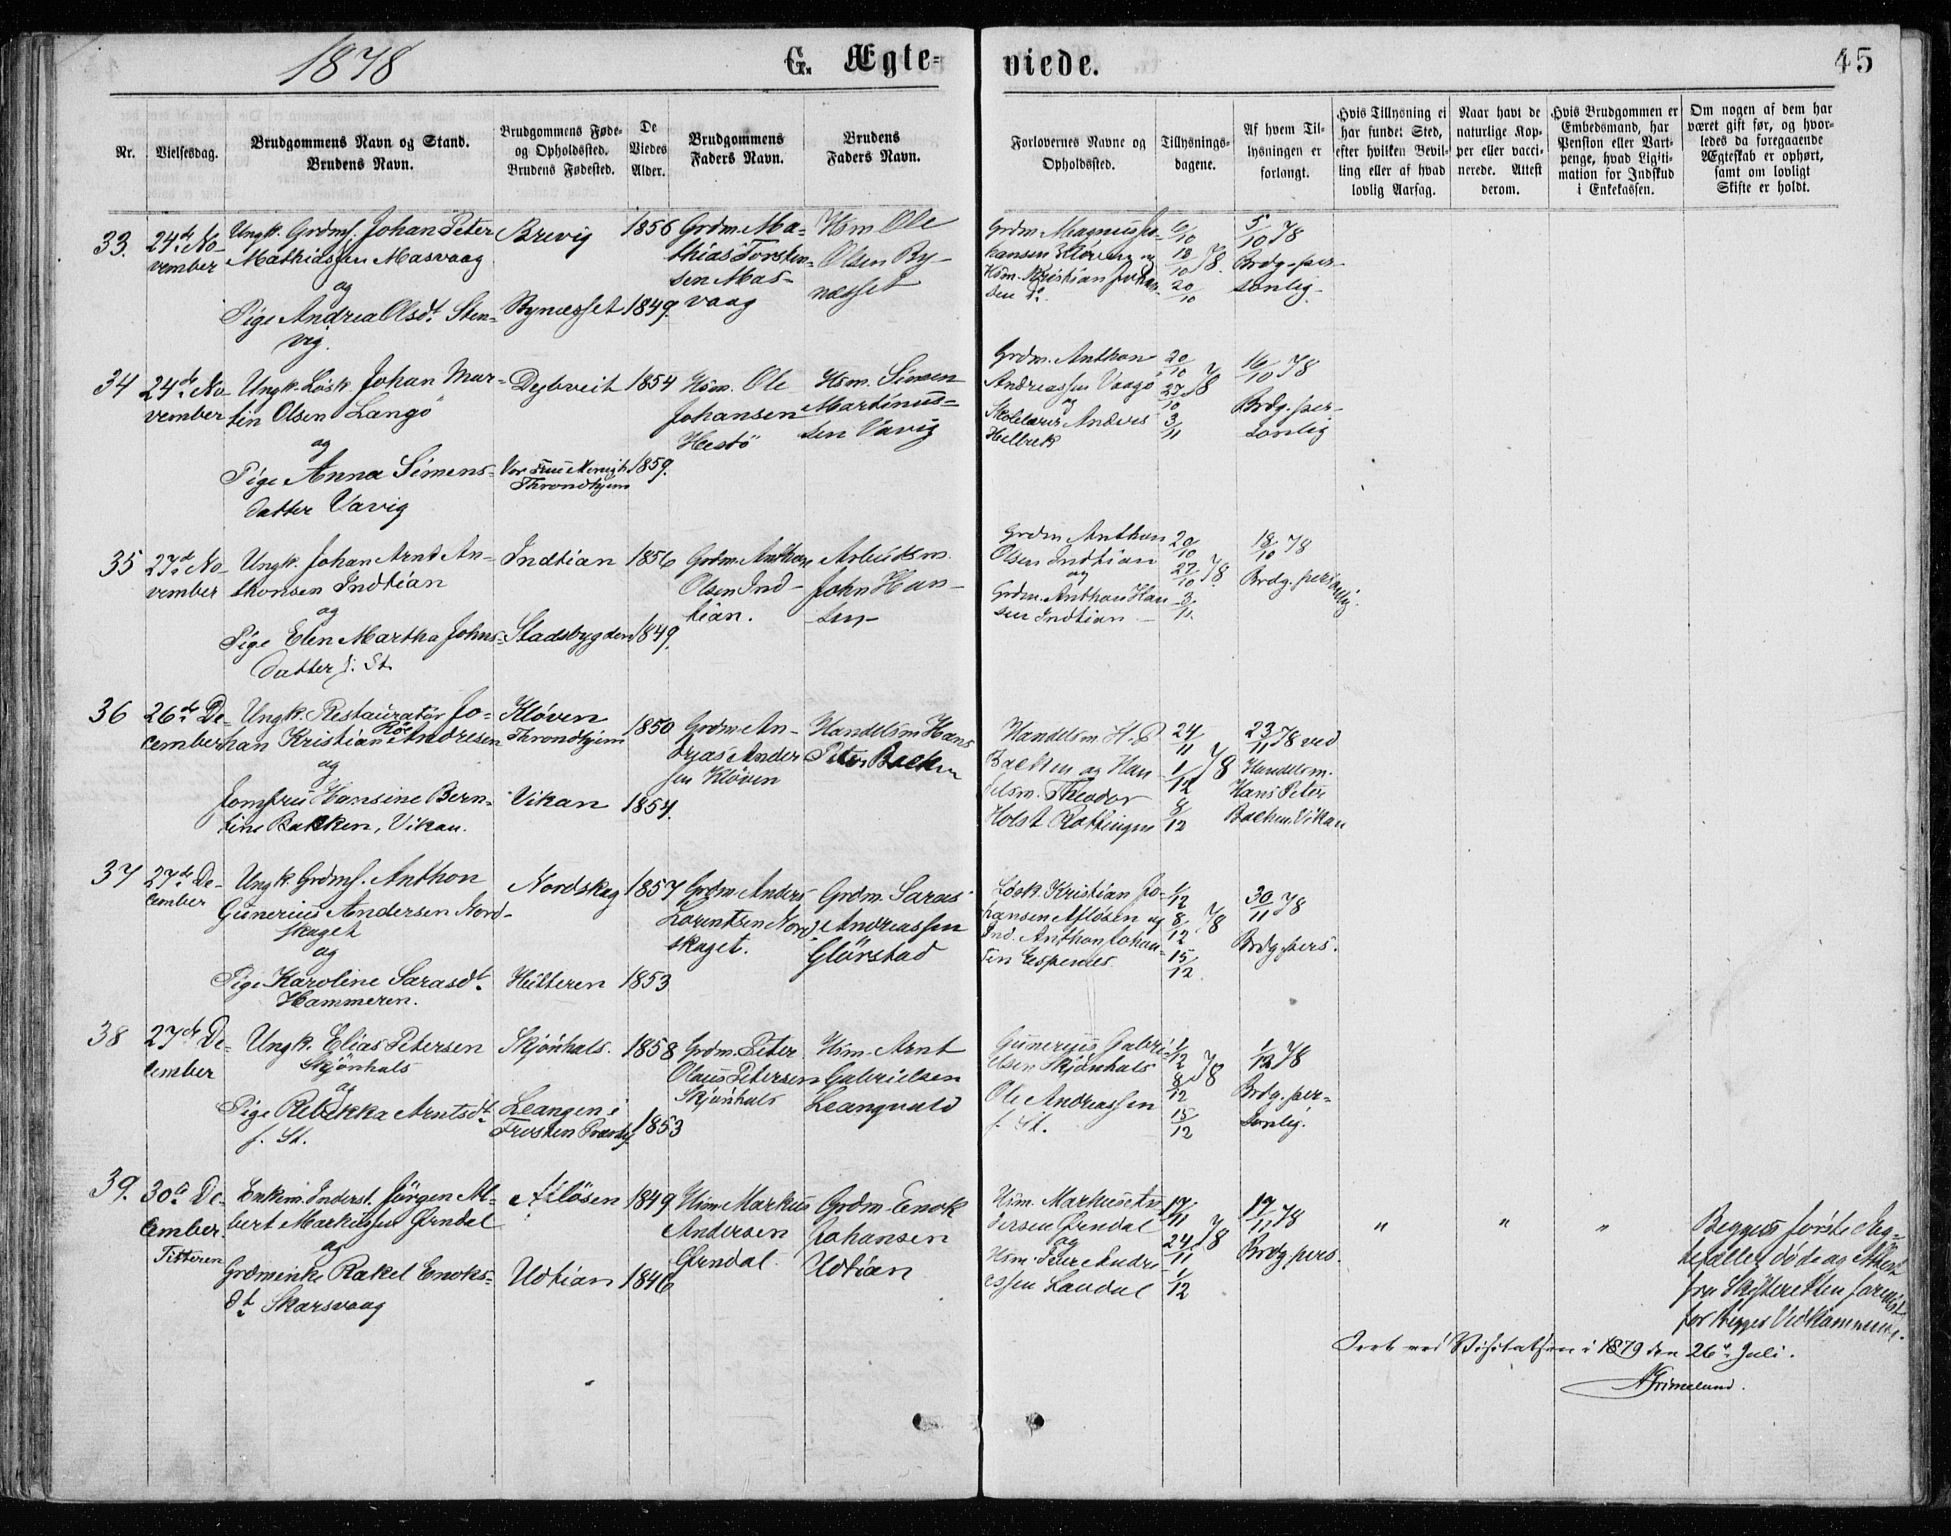 1878
G. Ægte-
viede.
45
Nr.
Vielsesdag.
Brudgommens Navn og Stand.
Brudens Navn.
Brudgommens Føde-
og Opholdssted.
Brudens Fødested.
De
Viedes
Alder.
Brudgommens
Faders Navn.
Brudens
Faders Navn.
Forlovernes Navne og
Opholdssted.
Tillysnings-
dagene.
Af hvem Til-
lysningen er
forlangt.
Hvis Tillysning ei
har fundet Sted,
efter hvilken Bevil-
ling eller af hvad
lovlig Aarsag.
Naar havt de
naturlige Kop-
per eller vacci-
nerede. Attest
derom.
Hvis Brudgommen er
Embedsmand, har
Pension eller Vart-
penge, hvad Ligiti-
mation for Indskud
i Enkekassen.
Om nogen af dem har
været gift før, og hvor-
ledes da foregaaende
Ægteskab er ophørt,
samt om lovligt
Skifte er holdt.
33.
24de No-
vember
Ungk. Grdms. Johan Peter
Mathiassen Masvaag
og
Pige Andrea Olsdt. Sten-
vig.
Brevig
Bynæsset
1856
1849.
Grdm. Ma-
thias Torsten-
sen Mas-
vaag
Hsm. Ole
Olsen By-
næsset
Grdm. Magnus Jo-
hansen og
Hsm. Kristian Johan-
sen do.
6/10
13/10 78.
20/10
5/10 78
Brdg. per-
sonlig.
34
24de No-
vember
Ungk. Løsk. Johan Mar-
tin Olsen Langö
og
Pige Anna Simens-
datter Vavig
Dejbveit
Vor Frue Menigh.
Throndhjem
1854
1859.
Hsm. Ole
Johansen
Hestö
Hsm. Simen
Martinus-
sen Vavig
Grdm. Anthon
Andreassen Vaagö
og
Skolelærer Anders
Helbæk
20/10
27/10 78
3/11
16/10 78
Brdg. per-
sonlig
35
27de No-
vember
Ungk. Johan Arnt An-
thonsen Indtian
og
Pige Elen Martha Johns-
datter f. St.
Indtian
Stadsbygden
1856
1849.
Grdm. Anthon
Olsen Ind-
tian.
Arbeidsm.
John Han-
sen
Grdm. Anthon
Olsen Indtian
og
Grdm. Anthon Han-
sen Indtian
20/10
27/10 78.
3/11.
18/10 78
Brdg. personlig.
36
26de De-
cember
Ungk. Restauratör Jo-
han Kristian Röe Andresen
og
Jomfru Hansine Bern-
tine Bakken, Vikan.
Klöven
Throndhjem
Vikan
1850
1854.
Grdm. An-
dreas Ander
sen Klöven
Handelsm. Hans
Peter Bakken
Handelsm. H. P.
Bakken og Han-
delsm. Theodor
Holst Rottingen
24/11
1/12 78
8/12
23/11 78 ved
Handelsm.
Hans Peter
Bakken Vikan
37
27de De-
cember
Ungk. Grdms. Anthon
Gunerius Andersen Nord-
skaget
og
Pige Karoline Sarasdt.
Hammeren.
Nordskag
Hitteren
1857
1853
Grdm. Anders
Lorentsen Nord-
skaget.
Grdm. Saras
Andreassen
Glörstad
Løsk. Kristian Jo-
hansen Afløsen og
Ind. Anthon Johan-
sen Espenes
1/12
8/12 78
15/12.
30/11 78
Brdg. pers.
38
27de De-
cember
Ungk. Elias Petersen
Skjönhals
og
Pige Rebekka Arntsdt.
f. St.
Skjönhals.
Leangen i
Frosten Præstgj.
1858
1853
Grdm. Peter
Olaus Petersen
Skjönhals
Hsm. Arnt
Gabrielsen
Leangvald
Gunerius Gabri-
elsen Skjönhals
Ole Andreassen
f. St.
1/12
8/12 78
15/12
1/12 78
Brdg. per-
sonlig.
39.
30de De-
cember
Titteren
Enkem. Inderst. Jörgen Al-
bert Markussen Örndal
og
Grdmenke Rakel Enoks-
dt. Skarsvaag
Aflösen
Udtian
1849
1846
Hsm. Markus
Andersen
Örndal.
Grdm. Enok
Johansen
Udtian
Hsm. Markus An-
dersen Örndal
og
Hsm. Peter Andre
essen Laudal
17/11
24/11 78
1/12
17/11 78
Brdg. pers.
" " "
Begges förste Æg-
tefæller döde og Attest
fra Skifteretten forevist
for begges Vedkommende.
Seet ved Visitatsen i 1879 den 26de Juli.
AGrimelund.